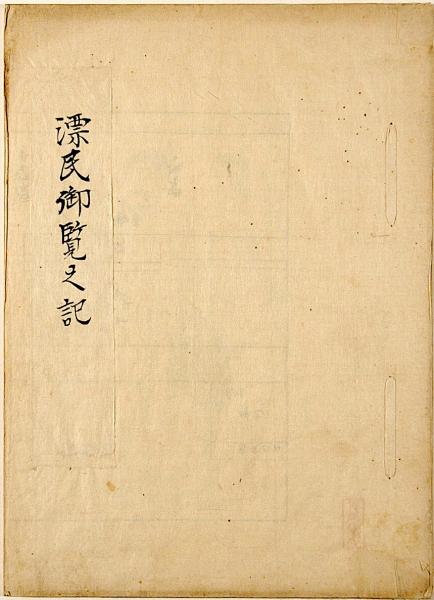 漂民御覧之記